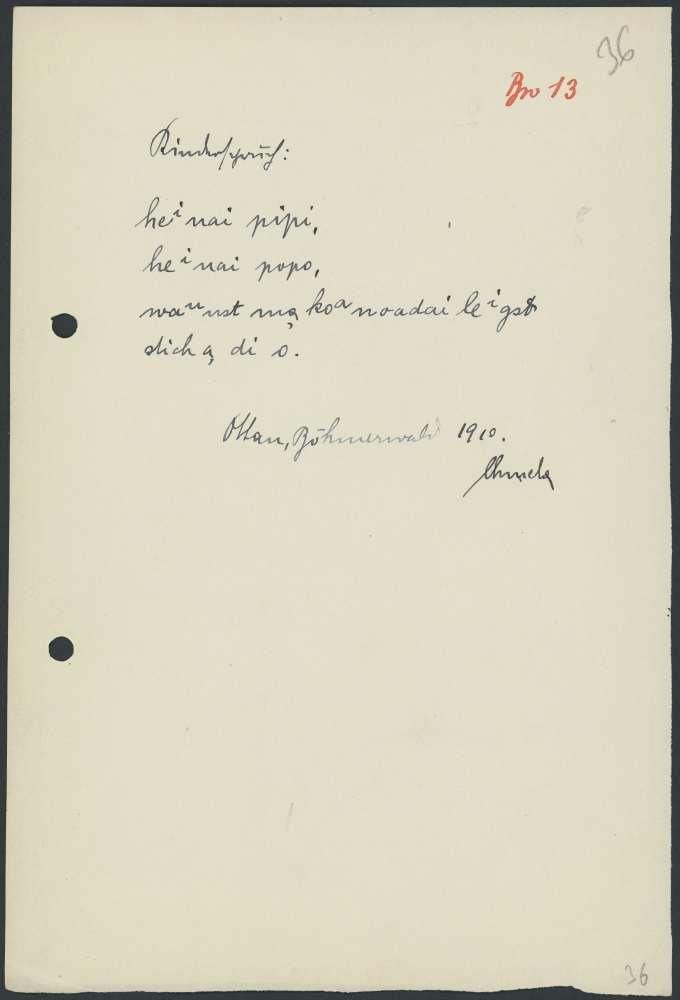 36
Bro 13
Kinderspruch:
heⁱnai pipi,
heⁱnai popo,
waⁿnst mą koᵃ noadai leⁱgst
stich ą di o.
Ottau, Böhmerwald 1910.
Chmela
36